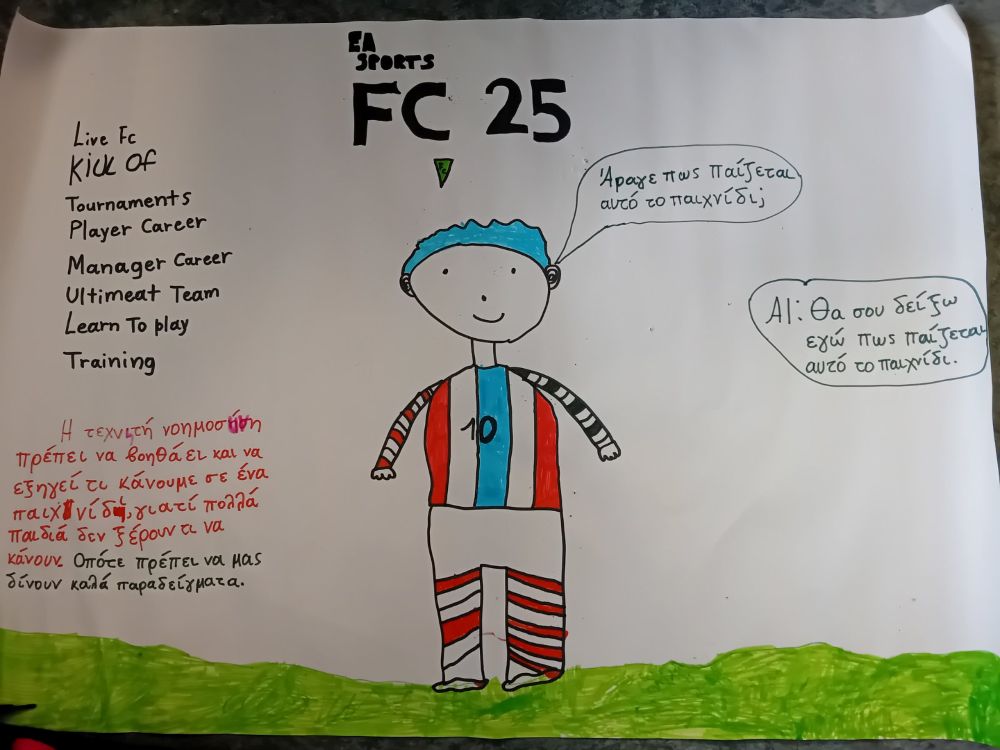 EA
SPORTS
FC 25
Live Fc
Kick Of
Tournaments
Player Career
Manager Career
Ultimeat Team
Learn To play
Training
Άραγε πως παίζεται
αυτό το παιχνίδι;
AI: Θα σου δείξω
εγώ πως παίζεται
αυτό το παιχνίδι.
10
Η τεχνιτή νοημοσύνη
πρέπει να βοηθάει και να
εξηγεί τι κάνουμε σε ένα
παιχνίδι, γιατί πολλά
παιδιά δεν ξέρουν τι να
κάνουν. Οπότε πρέπει να μας
δίνουν καλά παραδείγματα.